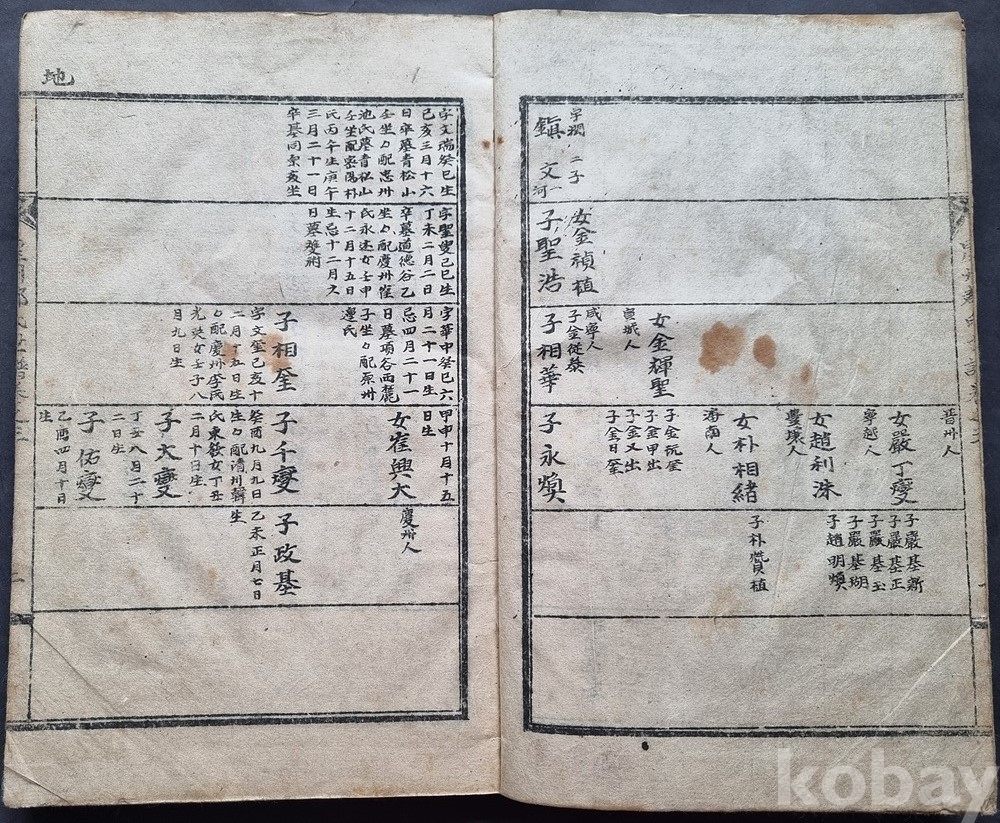 字潤
二子
鎭文
一
河
女金禎植
子聖浩
女金輝聖
宣城人
咸寧人
子金從泰
子相華
晋州人
女嚴丁燮
寧越人
女趙利洙
豊壤人
女朴相緖
濟南人
子金玩奎
子金甲出
子金又出
子金日奎
子永煥
子嚴基新
子嚴基正
子嚴基玉
子嚴基瑚
子趙明煥
子朴贊植
地
字文瑞癸巳生
己亥三月十六
日卒墓青松山
壬坐夕配忠州
池氏墓青松山
壬坐配密陽朴
氏丙午生庚午
三月二十一日
卒墓同原亥坐
字聖叟己巳生
丁未二月二日
卒墓道德谷乙
坐夕配慶州崔
氏永述女壬甲
十二月十五日
生忌十二月
日墓雙祔
字華中癸巳六
月二十一日生
忌四月二十一
日墓項谷西麓
子坐夕配原州
邊氏
子相奎
字文奎己亥十
二月丁五日生
夕配慶州李氏
光奕女壬子八
月九日生
甲申十月十五
日生
女崔興大
慶州人
子千燮
癸酉九月九日
生夕配清州韓
氏東欽女丁丑
二月十日生
子大燮
丁壬八月二十
二日生
子佑燮
乙酉四月十日
生
子政基
乙未正月七日
生
kobay